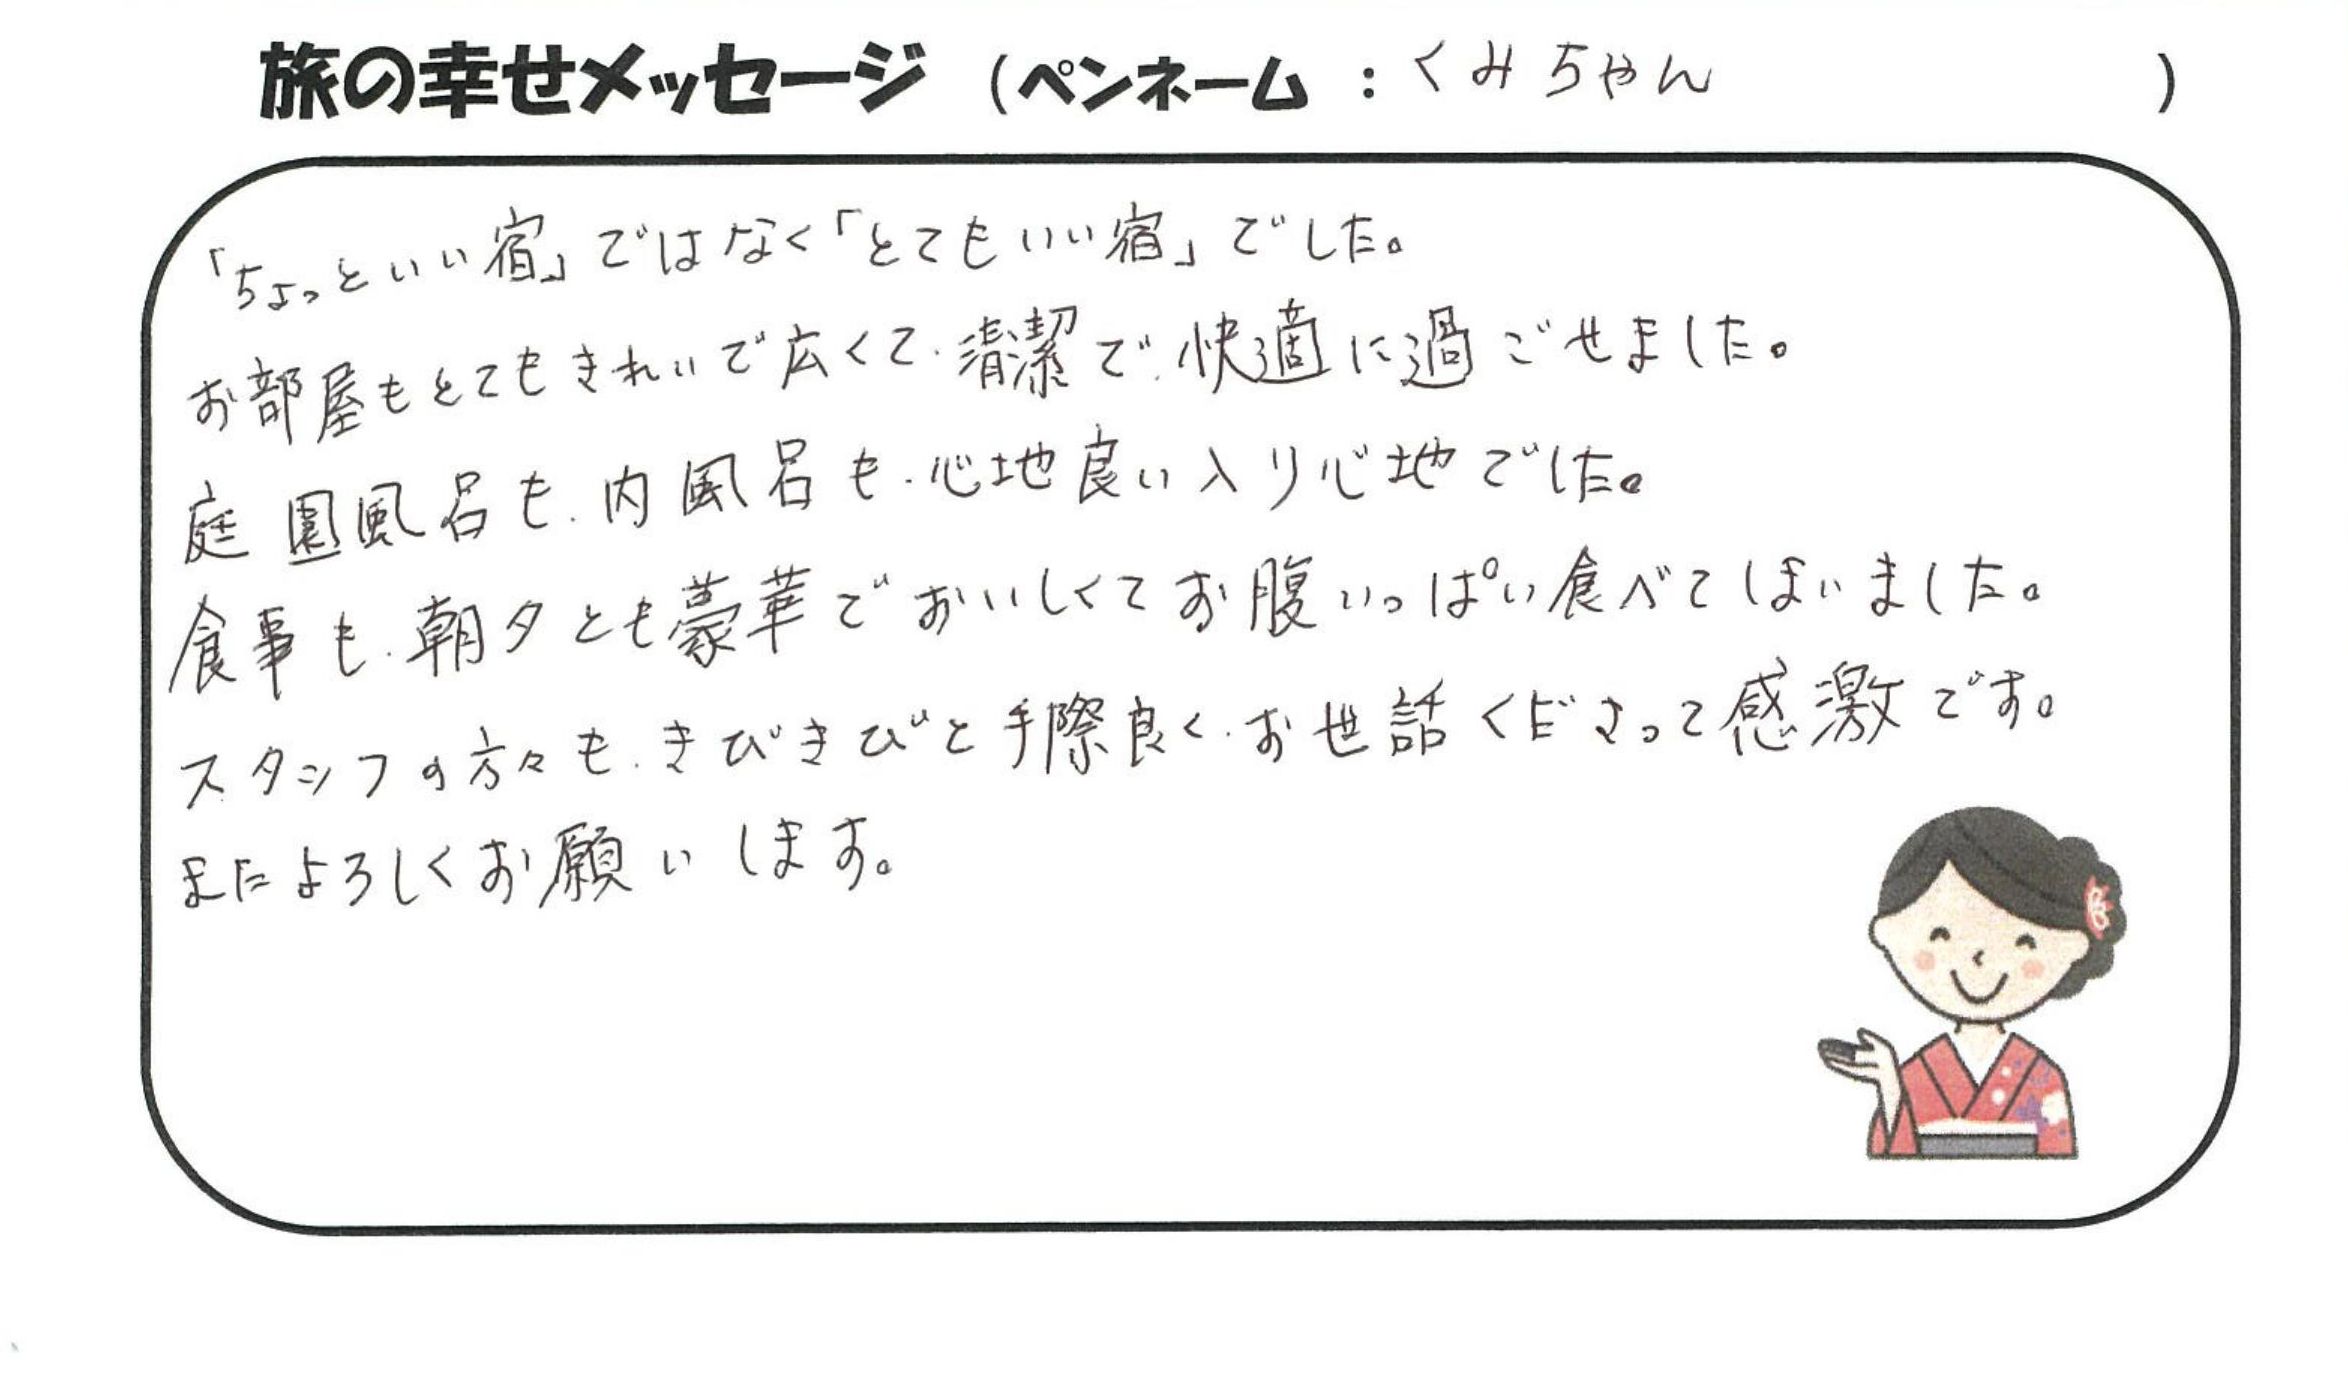 旅の幸せメッセージ (ペンネーム : くみちゃん )
「ちょっといい宿」ではなく「とてもいい宿」でした。
お部屋もとてもきれいで広くて、清潔で、快適に過ごせました。
庭園風呂も、内風呂も、心地良い入り心地でした。
食事も、朝夕とも豪華でおいしくてお腹いっぱい食べてしまいました。
スタッフの方々も、きびきびと手際良く、お世話くださって感激です。
またよろしくお願いします。